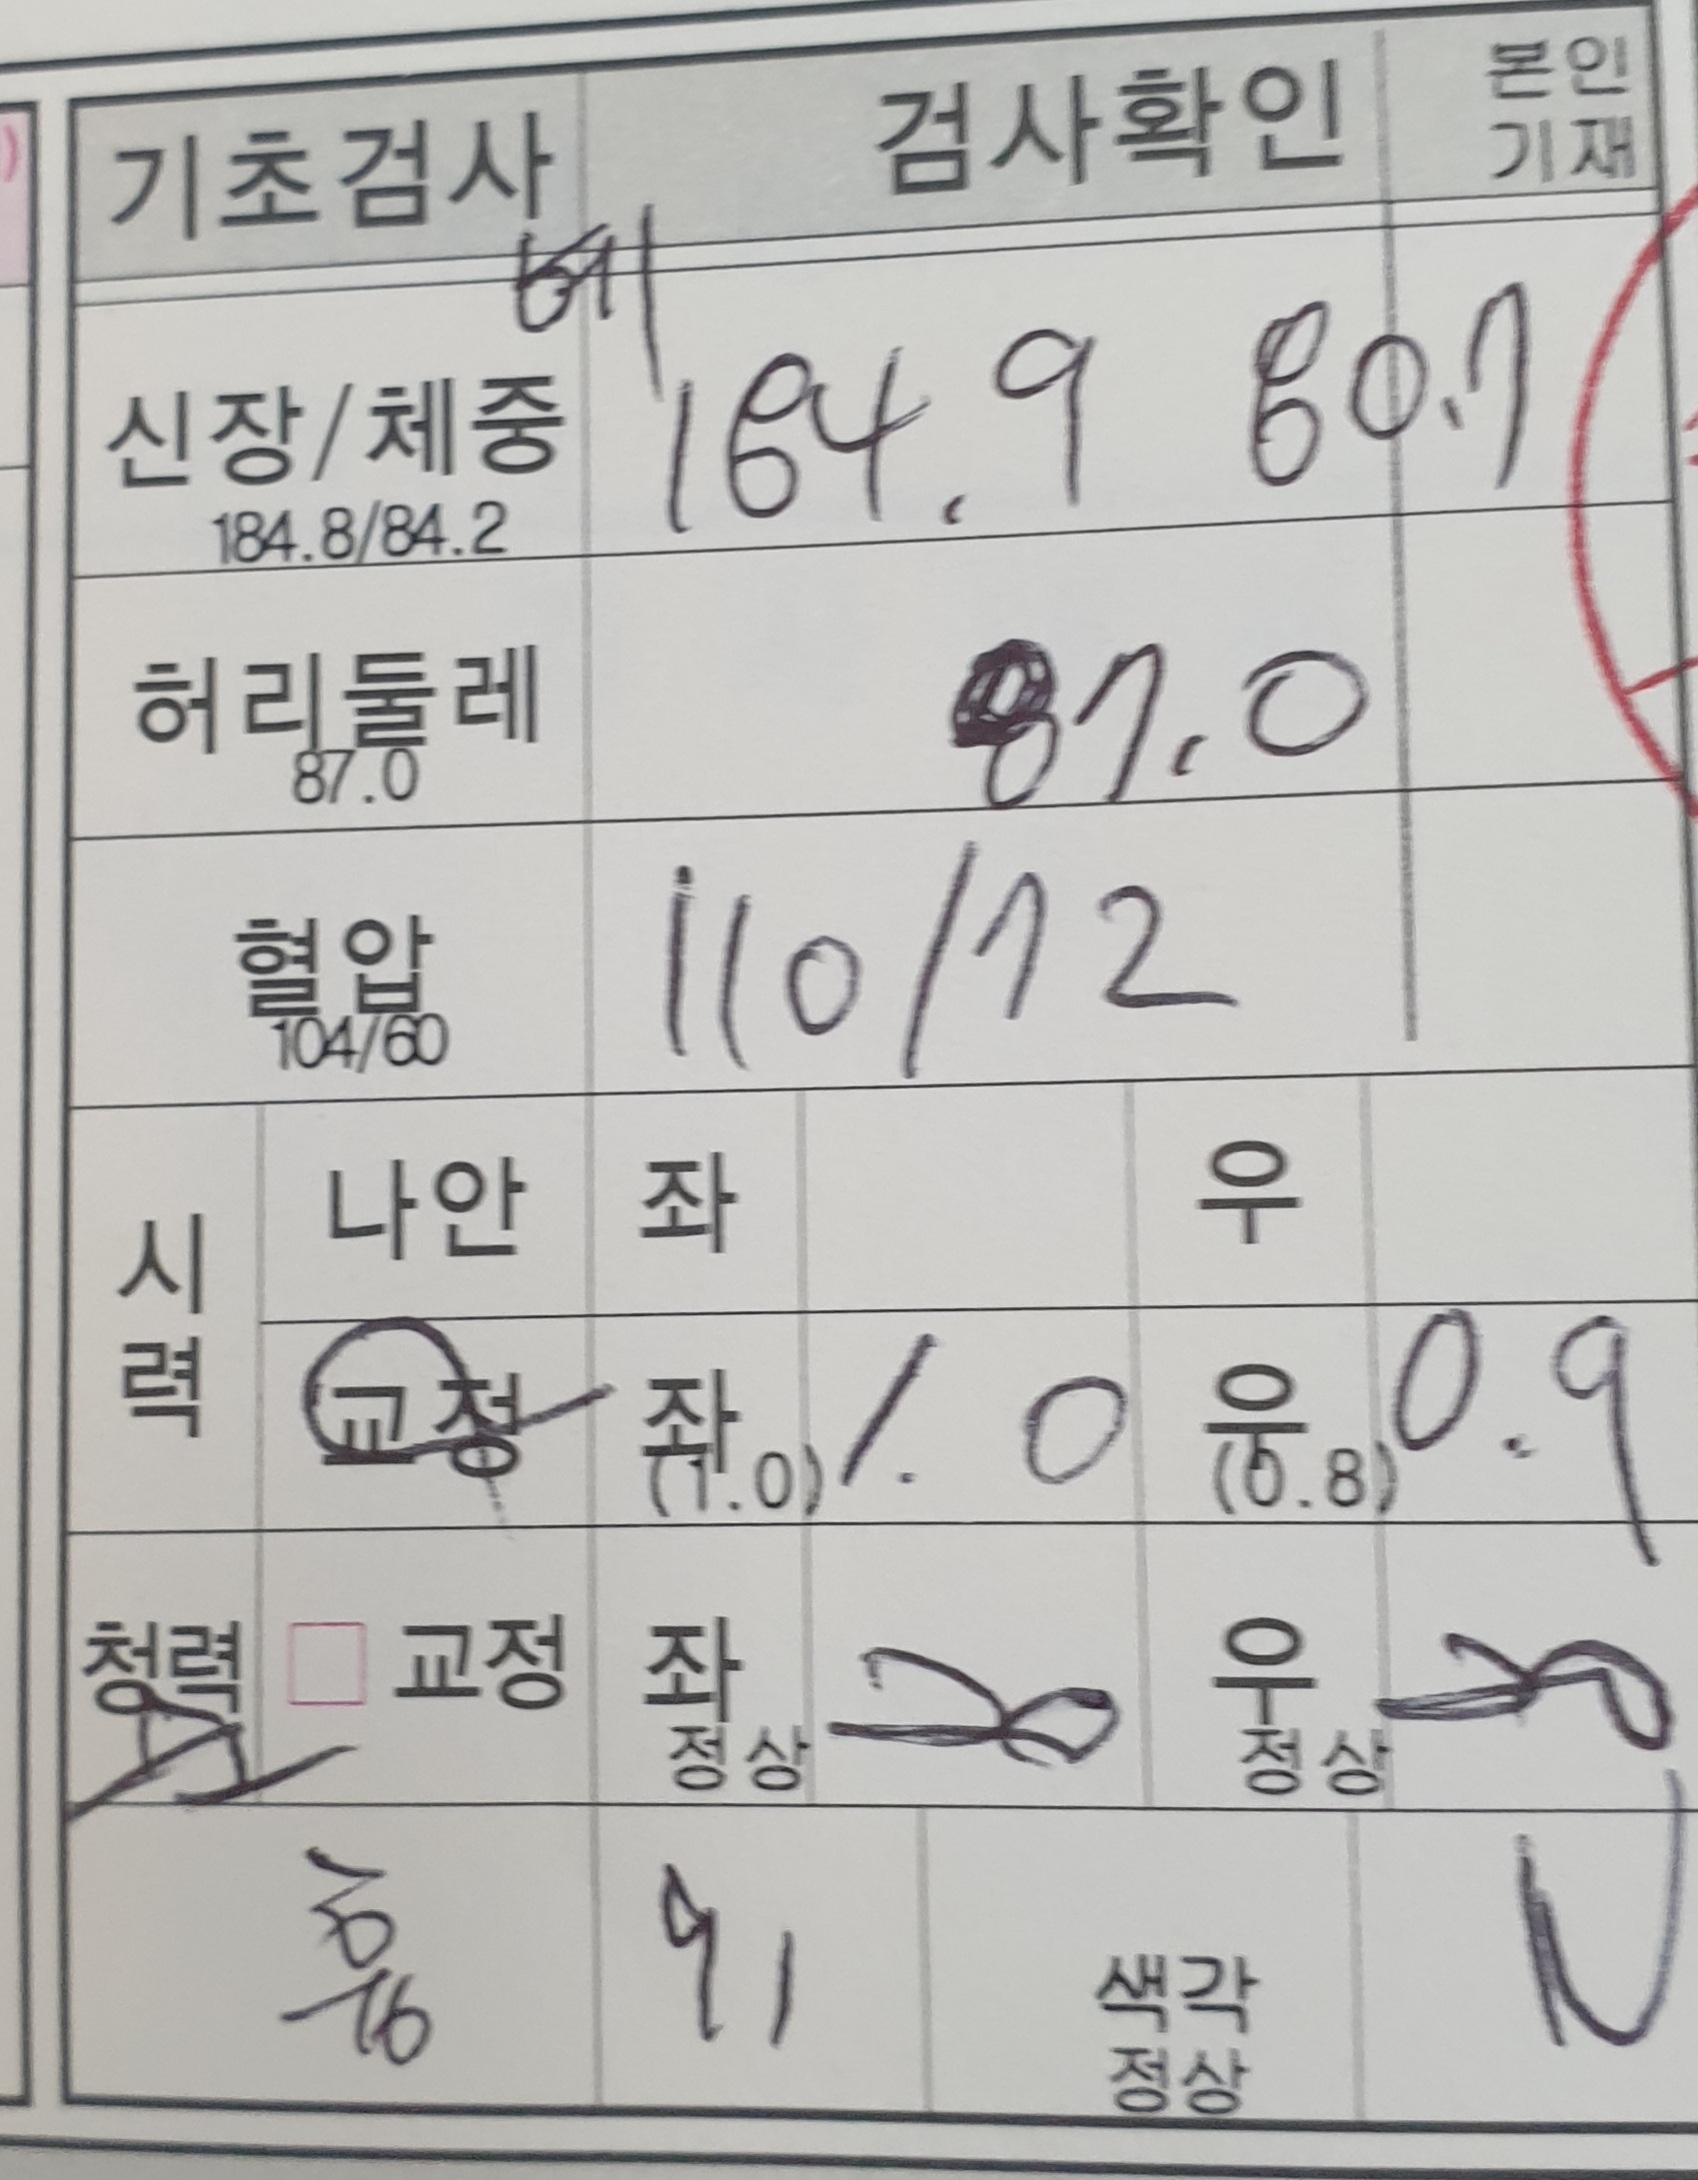 기초검사 검사확인 본인
기재
신장/체중 184.9 80.7
184.8/84.2
허리둘레 87.0
87.0
혈압 110/72
104/60
시력 나안 좌 우
교정 좌 1.0 우 0.9
(1.0) (0.8)
청력 교정 좌 20 우 20
정상 정상
흉 91 색각 N
정상